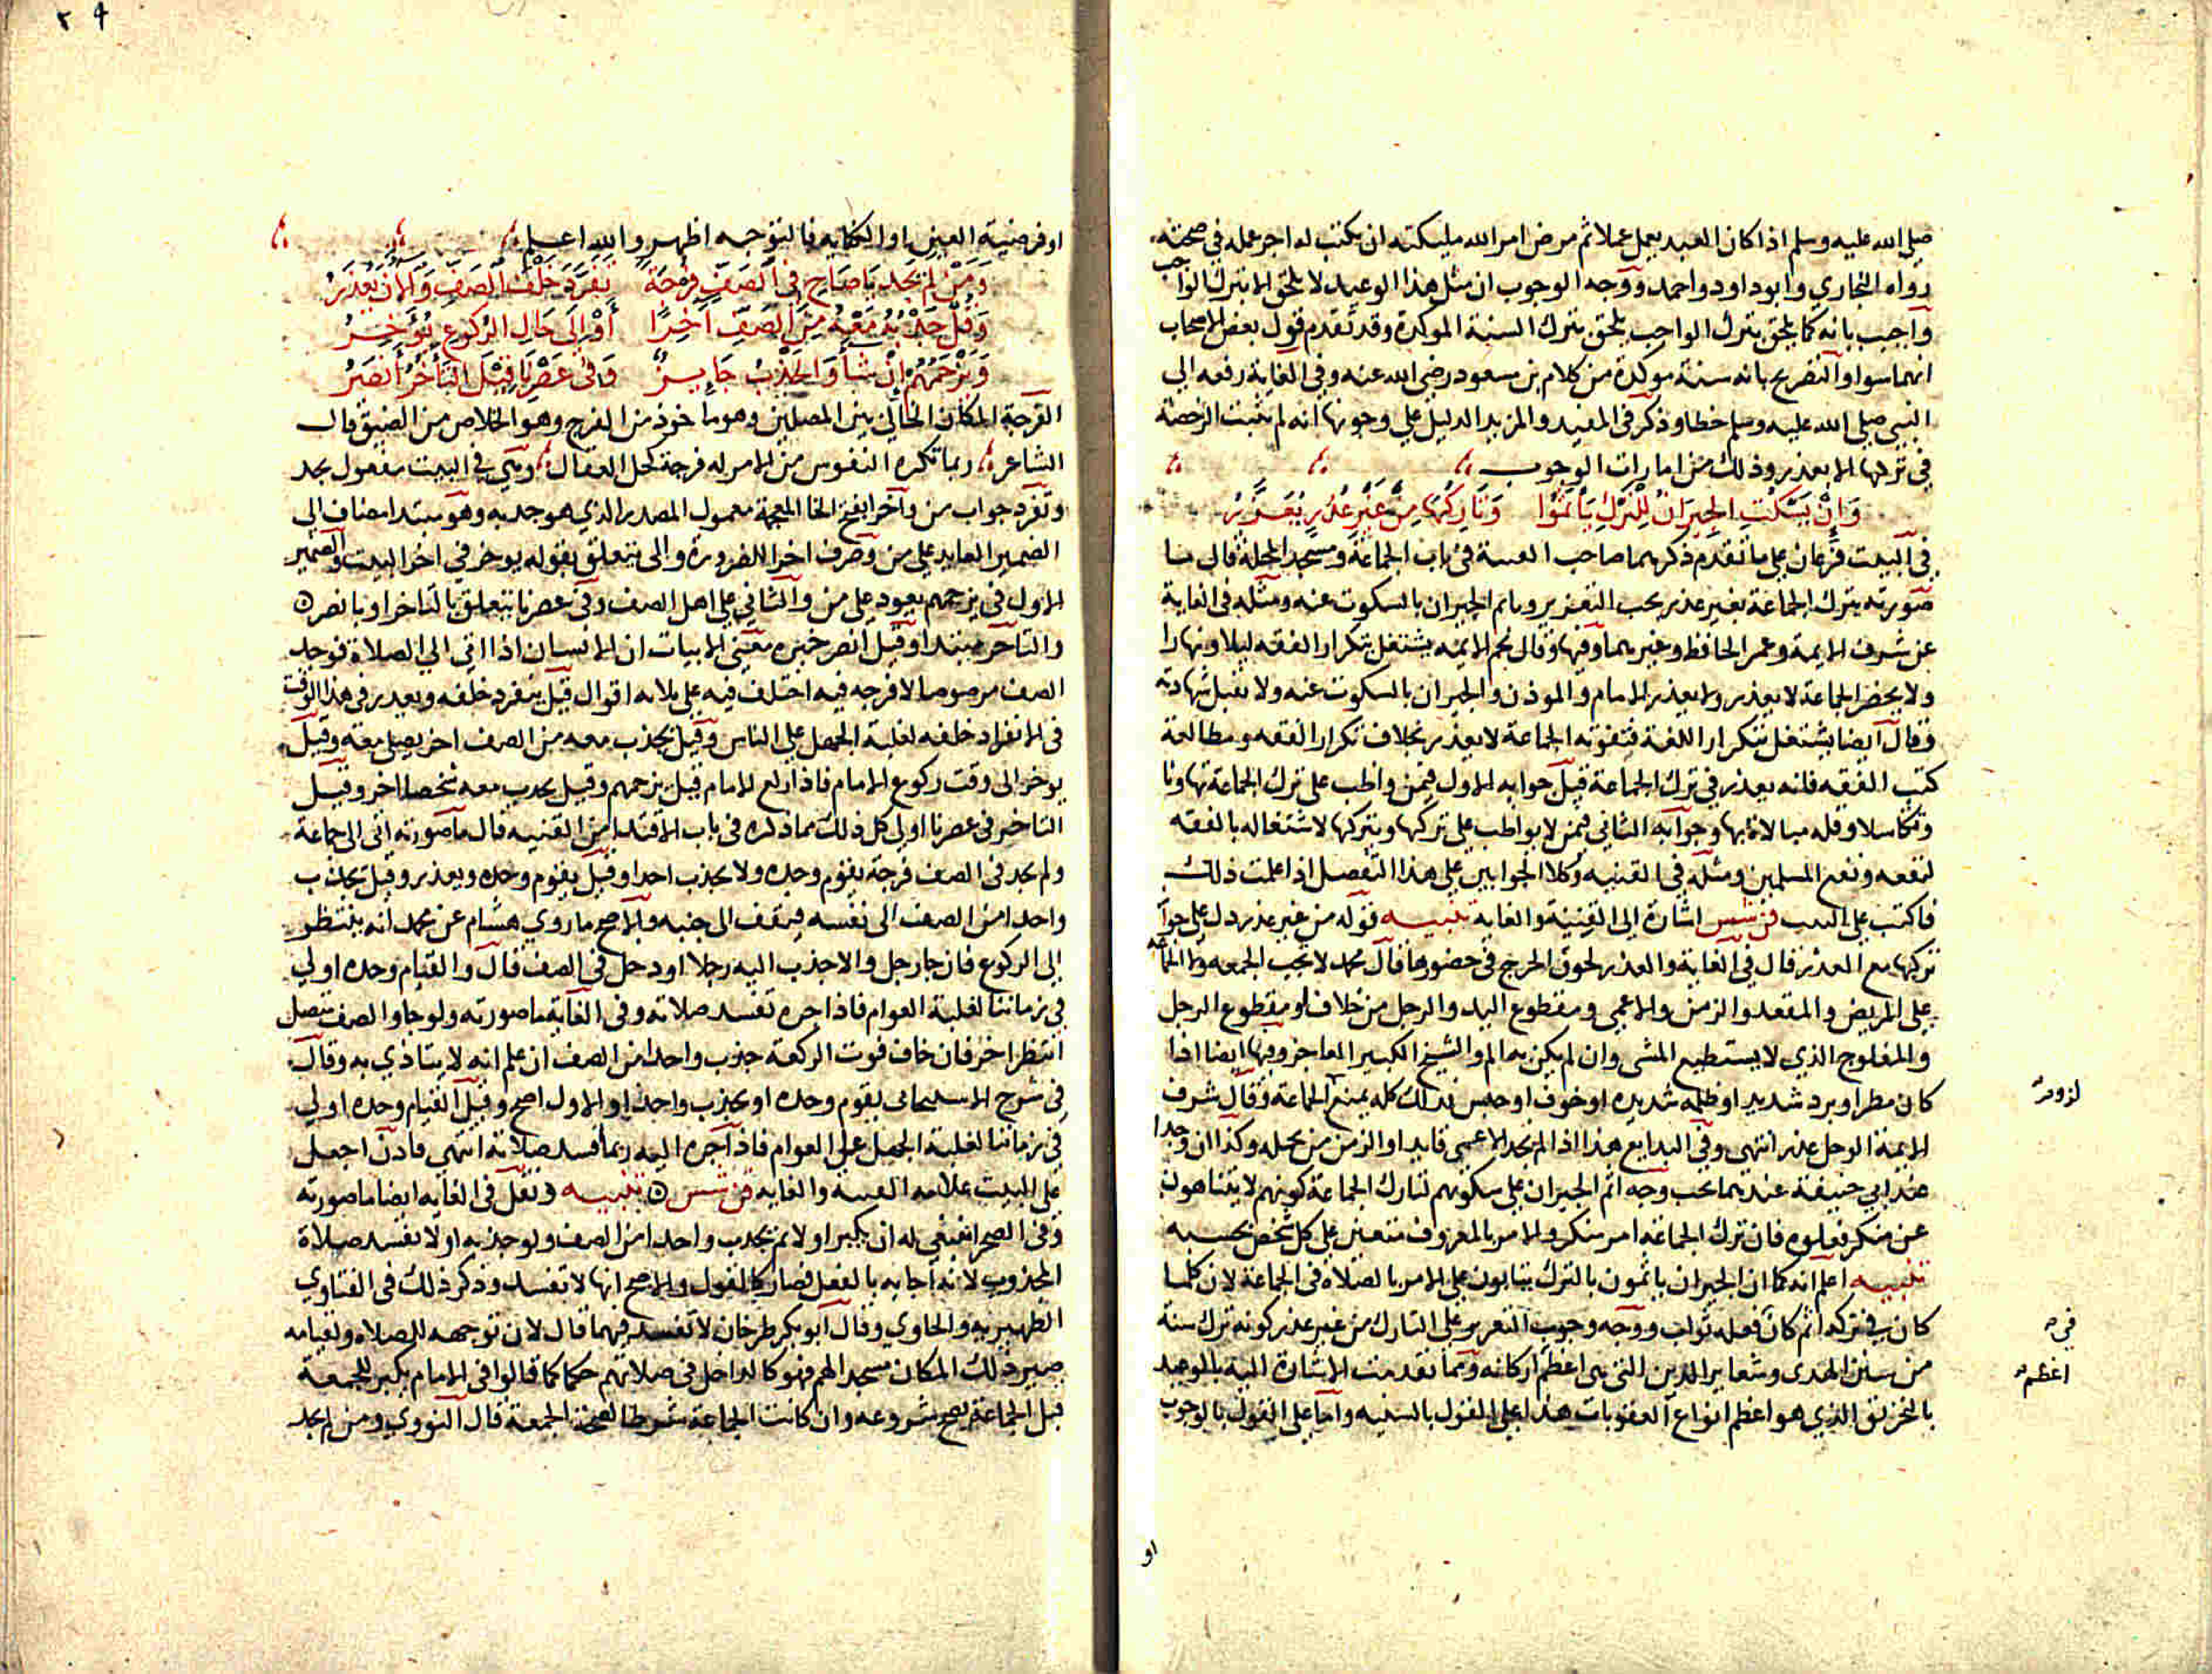 صلى الله عليه وسلم اذا كان العبد يعمل عملا ثم مرض امر الله مليكته ان يكتب له اجر عمله في صحته
رواه البخاري وابو داود واحمد ووجه الوجوب ان مثل هذا الوعيد لا يلحق الا بترك الواجب
واجيب بانه كما يلحق بترك الواجب يلحق بترك السنة الموكدة وقد تقدم قول بعض الاصحاب
انهما سوا والتصريح بانه سنة موكدة من كلام بن مسعود رضي الله عنه وفي الغاية رفعه الى
النبي صلى الله عليه وسلم خطا وذكر في المفيد والمزيد الدليل على وجوبها انه لم تثبت الرخصة
في تركها الا بعذر وذلك من امارات الوجوب
وَاِنْ يَسْكُتِ الجِيرَانُ لِلتَّرْكِ يَأْثَمُوا وَتَارِكُهَا مِنْ غَيْرِ عُذْرٍ يُعَزَّرُ
في البيت فرعان على ما تقدم ذكرهما صاحب القنية في باب الجماعة ومسجد المحلة قال ما
صورته بترك الجماعة بغير عذر يجب التعزير وياثم الجيران بالسكوت عنه ومثله في الغاية
عن شرف الايمة وعمر الحافظ وغيرهما وفيها وقال نجم الايمة يشتغل بتكرار الفقه ليلا ونهارا
ولا يحضر الجماعة لا يعذر ولا يعذر الامام والموذن والجيران بالسكوت عنه ولا تقبل شهادته
وقال ايضا يشتغل بتكرار اللغة فتفوته الجماعة لا يعذر بخلاف تكرار الفقه ومطالعة
كتب الفقه فانه يعذر في ترك الجماعة قيل جوابه الاول فيمن واظب على ترك الجماعة تهاونا
وتكاسلا وقله مبالاة بها وجوابه الثاني فيمن لا يواظب على تركها ويتركها لاشتغاله بالفقه
لنفعه ونفع المسلمين ومثله في القنيه وكلا الجوابين على هذا التفصيل اذا علمت ذلك
فاكتب على البيت قن شس اشارة الى القنية والغاية تنبيه قوله من غير عذر دل على جواز
تركها مع العذر قال في الغاية والعذر لحوق الحرج في حضورها قال محمد لا تجب الجمعه ولا الجماعه
على المريض والمقعد والزمن والاعمى ومقطوع اليد والرجل من خلاف او مقطوع الرجل
والمفلوج الذي لا يستطيع المشي وان لم يكن به الم والشيخ الكبير العاجز وفيها ايضا اذا
كان مطر او برد شديد او ظلمه شديده او خوف او حبس فذلك كله يمنع لزوم الجماعة وقال شرف
الايمة الوحل عذر انتهى وفي البدايع هذا اذا لم يجد الاعمى قايدا والزمن من يحمله وكذا ان وجدا
عند ابي حنيفة عندهما يجب وجه اثم الجيران على سكوتهم لتارك الجماعة كونهم لا يتناهون
عن منكر فعلوه فان ترك الجماعة امر منكر والامر بالمعروف متعين على كل شخص بحسبه
تنبيه اعلم انه كما ان الجيران ياثمون بالترك يثابون على الامر بالصلاة في الجماعة لان كلما
كان في تركه اثم كان في فعله ثواب ووجه وجوب التعزير على التارك من غير عذر كونه ترك سنة
من سنن الهدى وشعاير الدين التي هي اعظم اركانه ومما تقدمت الاشارة اليه بالوعيد
بالتحريق الذي هو اعظم انواع العقوبات هذا على القول بالسنيه واما على القول بالوجوب
او
لزوم
في
اعظم
او فرضية العين او الكفايه فالتوجيه اظهر والله اعلم
وَمَنْ لَمْ يَجِدْ يَا صَاحِ فِي الصَّفِّ فُرْجَةً تَفَرَّدَ خَلْفَ الصَّفِّ وَالْآنَ يُعْذَرُ
وَقُلْ جَذْبُهُ مَعْهُ مِنَ الصَّفِّ آخَرًا أَوْ إِلَى حَالِ الرُّكُوعِ يُؤَخِّرُ
وَيَزْحَمُهُمْ إِنْ شَاءَ وَالْجَذْبُ جَايِزٌ وَفِي عَصْرِنَا قِيْلَ التَّأَخُّرُ أَنْصَرُ
الفرجة المكان الخالي بين المصلين وهو ماخوذ من الفرج وهو الخلاص من الضيق قال
الشاعر ربما تكره النفوس من الامر له فرجة كحل العقال وهي في البيت مفعول يجد
وتفرد جواب من وآخرا بفتح الخا المعجمة معمول المصدر الذي هو جذبه وهو مبتدا مضاف الى
الضمير العايد على من وصرف اخرا للضرورة والى تتعلق بقوله يوخر في اخر البيت والضمير
الاول في يزحمهم يعود على من والثاني على اهل الصف وفي عصرنا يتعلق بالتاخر او بانصر
والتاخر مبتدا وقيل انصر خبره معنى الابيات ان الانسان اذا اتى الى الصلاة فوجد
الصف مرصوصا لا فرجه فيه اختلف فيه على ثلاثه اقوال قيل ينفرد خلفه ويعذر في هذا الوقت
في الانفراد خلفه لغلبة الجهل على الناس وقيل يجذب معه من الصف اخر يصلي معه وقيل
يوخر الى وقت ركوع الامام فاذا ركع الامام قيل يزحمهم وقيل يجذب معه شخصا اخر وقيل
التاخير في عصرنا اولى كل ذلك مما ذكره في باب الاقتدا من القنيه قال ما صورته اتى الى جماعة
ولم يجد في الصف فرجة يقوم وحده ولا يجذب احدا وقيل يقوم وحده ويعذر وقيل يجذب
واحدا من الصف الى نفسه فيقف الى جنبه والاصح ما روي هشام عن محمد انه ينتظر
الى الركوع فان جا رجل والا جذب اليه رجلا او دخل في الصف قال والقيام وحده اولى
في زماننا لغلبة العوام فاذا جره تفسد صلاته وفي الغاية ما صورته ولو جا والصف متصل
انتظر اخر فان خاف فوت الركعة جذب واحدا من الصف ان علم انه لا يتاذي به وقال
في شرح الاسبيجابي يقوم وحده او يجذب واحدا والاول اصح وقيل القيام وحده اولى
في زماننا لغلبة الجهل على العوام فاذا جره اليه ربما فسد صلاته انتهى فاذن اجعل
على البيت علامه القنية والغايه قن شس ه تنبيه ونقل في الغايه ايضا ما صورته
وفي الصحرا ينبغي له ان يكبر اولا ثم يجذب واحدا من الصف ولو جذبه اولا تفسد صلاة
المجذوب لانه اجابه بالفعل فصار كالقول والاصح انها لا تفسد وذكر ذلك في الفتاوي
الظهيريه والحاوي وقال ابو بكر طرخان لا تفسد فيهما قال لان توجهه للصلاه ولقيامه
صير ذلك المكان مسجدا لهم فهو كالداخل في صلاتهم حكما كما قالوا في الامام يكبر للجمعة
قبل الجماعة يصح شروعه وان كانت الجماعة شرطا لصحة الجمعة قال النووي ومن لم يجد